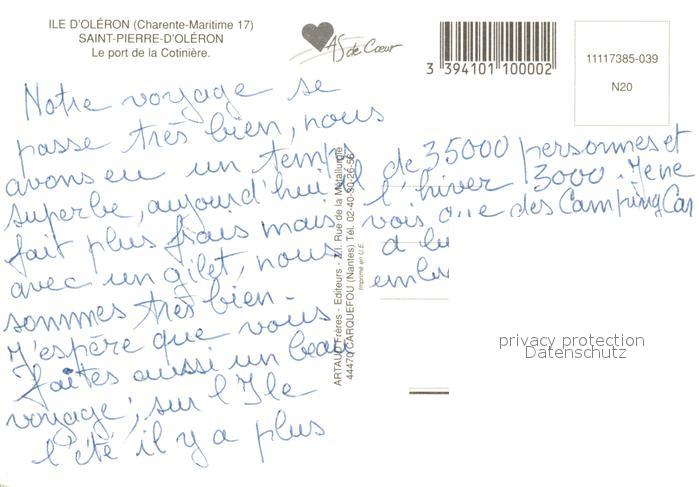 ILE D'OLÉRON (Charente-Maritime 17)
SAINT-PIERRE-D'OLÉRON
Le port de la Cotinière.
AS de Cœur
3 394101 100002
11117385-039
N20
Notre voyage se
passe très bien, nous
avons eu un temps
superbe, aujourd'hui il
fait plus frais mais
avec un gilet, nous
sommes très bien.
J'espère que vous
faites aussi un beau
voyage; sur l'Ile
l'été il y a plus
de 35000 personnes et
l'hiver 3000. Je ne
vois que des Camping Car
ARTAUD Frères - Editeurs - Z.I. Rue de la Métallurgie
44470 CARQUEFOU (Nantes) Tél. 02-40-30-26-56
Imprimé en U.E.
privacy protection
Datenschutz